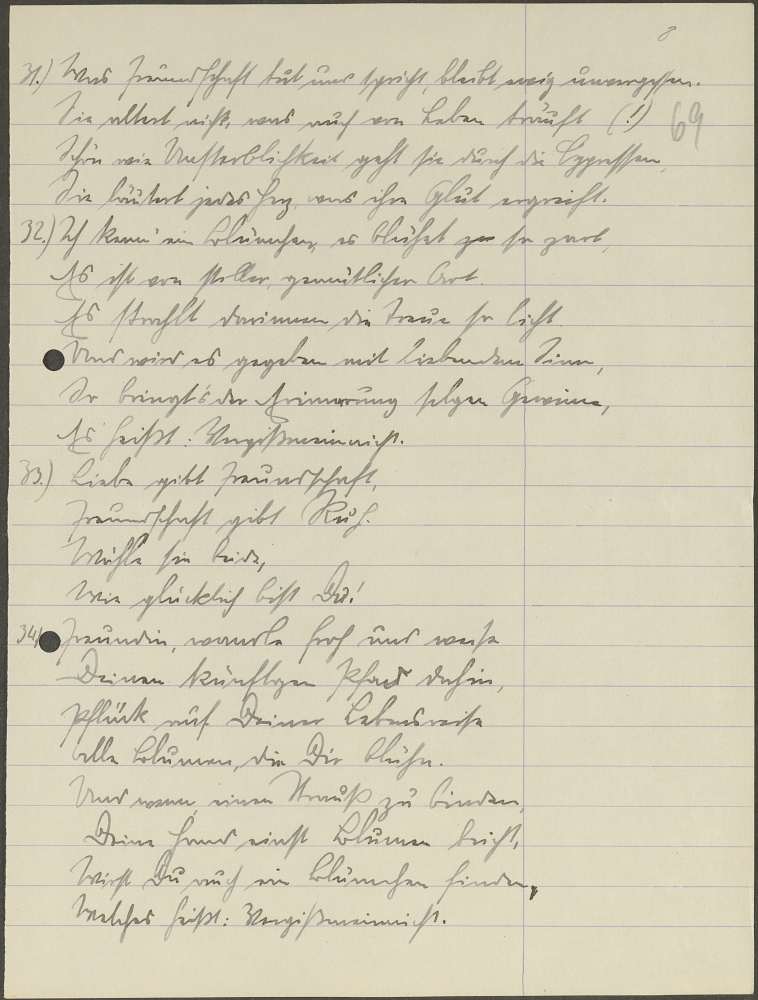 8
69
31.) Was Freundschaft tut und spricht, bleibt ewig unvergessen.
Sie altert nicht, was auch von Leben träuft (!)
Schön wie Unsterblichkeit geht sie durch die Cypressen,
Sie läutert jedes Herz, was ihre Glut ergreift.
32.) Ich kenn' ein Blümchen, es blühet so zart,
Es ist von stiller, gemütlicher Art.
Es strahlt darinnen die Treue so licht.
Und wird es gegeben mit liebendem Sinn,
So bringt's der Erinnerung selgen Gewinn,
Es heißt: Vergißmeinnicht.
33.) Liebe gibt Freundschaft,
Freundschaft gibt Ruh.
Wähle sie beide,
Wie glücklich bist Du!
34.) Freundin, wandle froh und weise
Deinen künftgen Pfad dahin,
Pflück auf Deiner Lebensreise
Alle Blumen, die Dir blühn.
Und wenn, einen Strauß zu binden,
Deine Hand einst Blumen bricht,
Wirst Du auch ein Blümchen finden,
Welches heißt: Vergißmeinnicht.